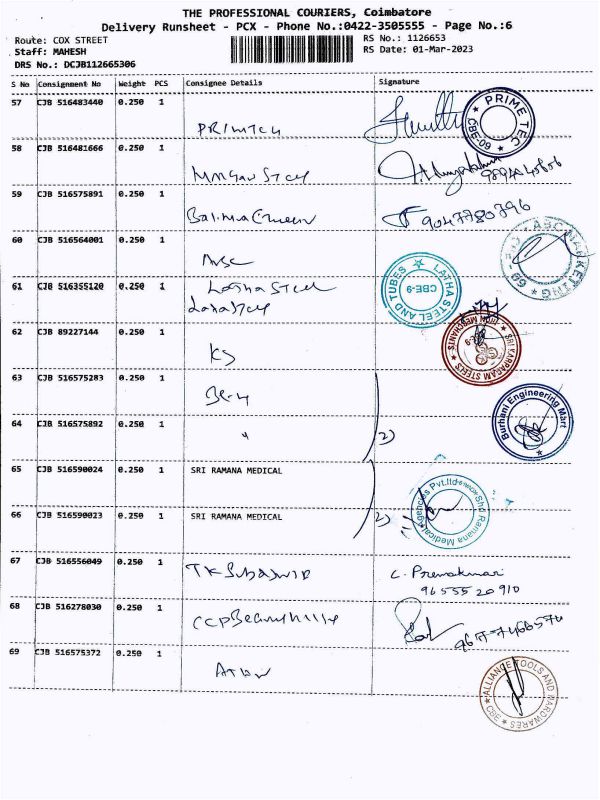 THE PROFESSIONAL COURIERS, Coimbatore
Delivery Runsheet - PCX - Phone No.:0422-3505555 - Page No.:6
Route: COX STREET RS No.: 1126653
Staff: MAHESH RS Date: 01-Mar-2023
DRS No.: DCJB112665306
S No Consignment No Weight PCS Consignee Details Signature
57 CJB 516483440 0.250 1
PRIMTCH
PRIME TEC CBE-09
58 CJB 516481666 0.250 1
59 CJB 516575891 0.250 1
9047780396
60 CJB 516564001 0.250 1
ABC MARKETING
61 CJB 516355120 0.250 1
Latha Steel
LATHA STEEL AND TUBES CBE-9
62 CJB 89227144 0.250 1
KS
SRI KARPAGAM STEELS
63 CJB 516575283 0.250 1
64 CJB 516575892 0.250 1
2)
Burhani Engineering Mart
65 CJB 516590024 0.250 1 SRI RAMANA MEDICAL
66 CJB 516590023 0.250 1 SRI RAMANA MEDICAL
2)
Shri Ramana Medical Agencies Pvt.Ltd
67 CJB 516556049 0.250 1
C. Premakumar
96555 20910
68 CJB 516278030 0.250 1
69 CJB 516575372 0.250 1
ALLIANCE TOOLS AND HARDWARES CBE